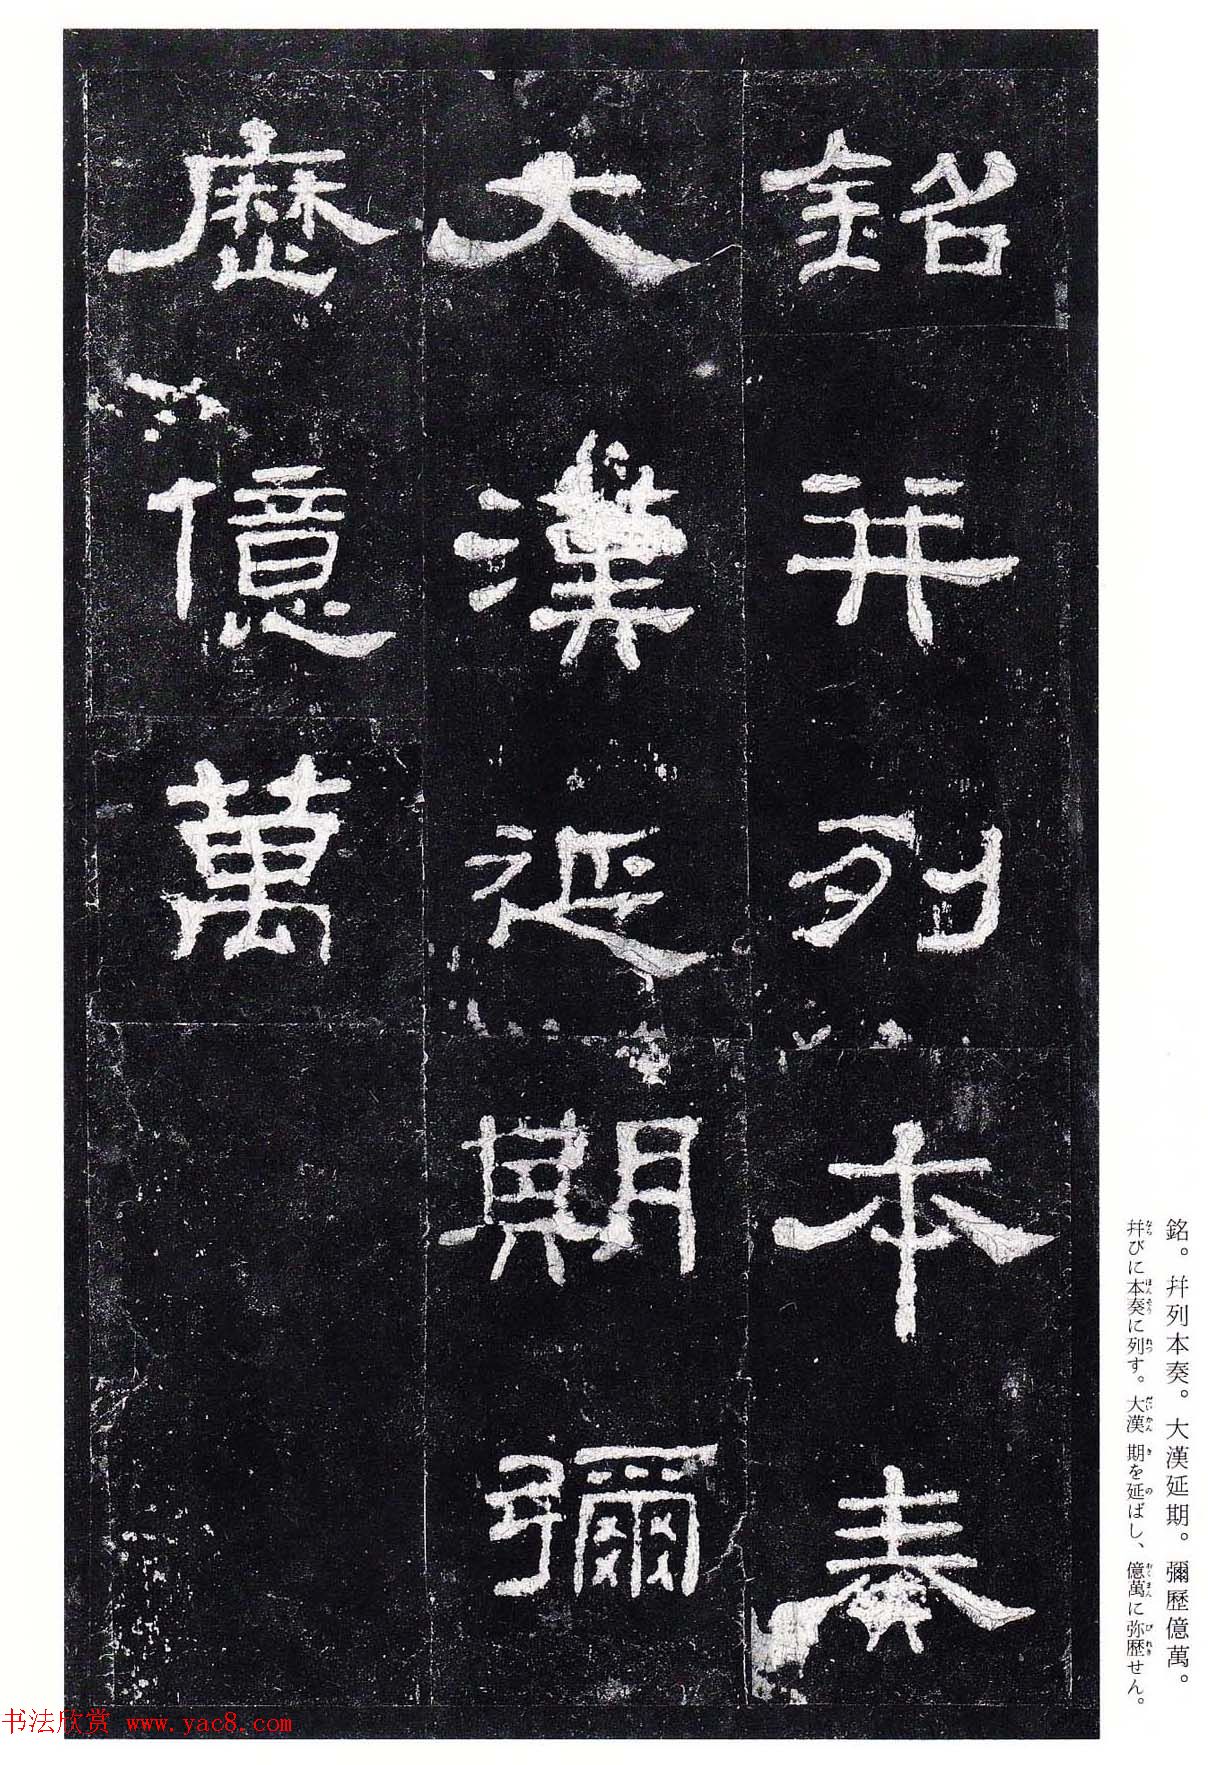 銘并列本奏
大漢延期彌
歷億萬
銘。幷列本奏。大漢延期。彌歷億萬。
幷びに本奏に列す。大漢 期を延ばし、億萬に弥歴せん。
书法欣赏 www.yac8.com